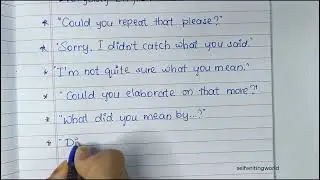 * "Could you repeat that please?"
* "Sorry, I didn't catch what you said."
* "I'm not quite sure what you mean."
* "Could you elaborate on that more?"
* "What did you mean by...?"
* "Di
selfwritingworld